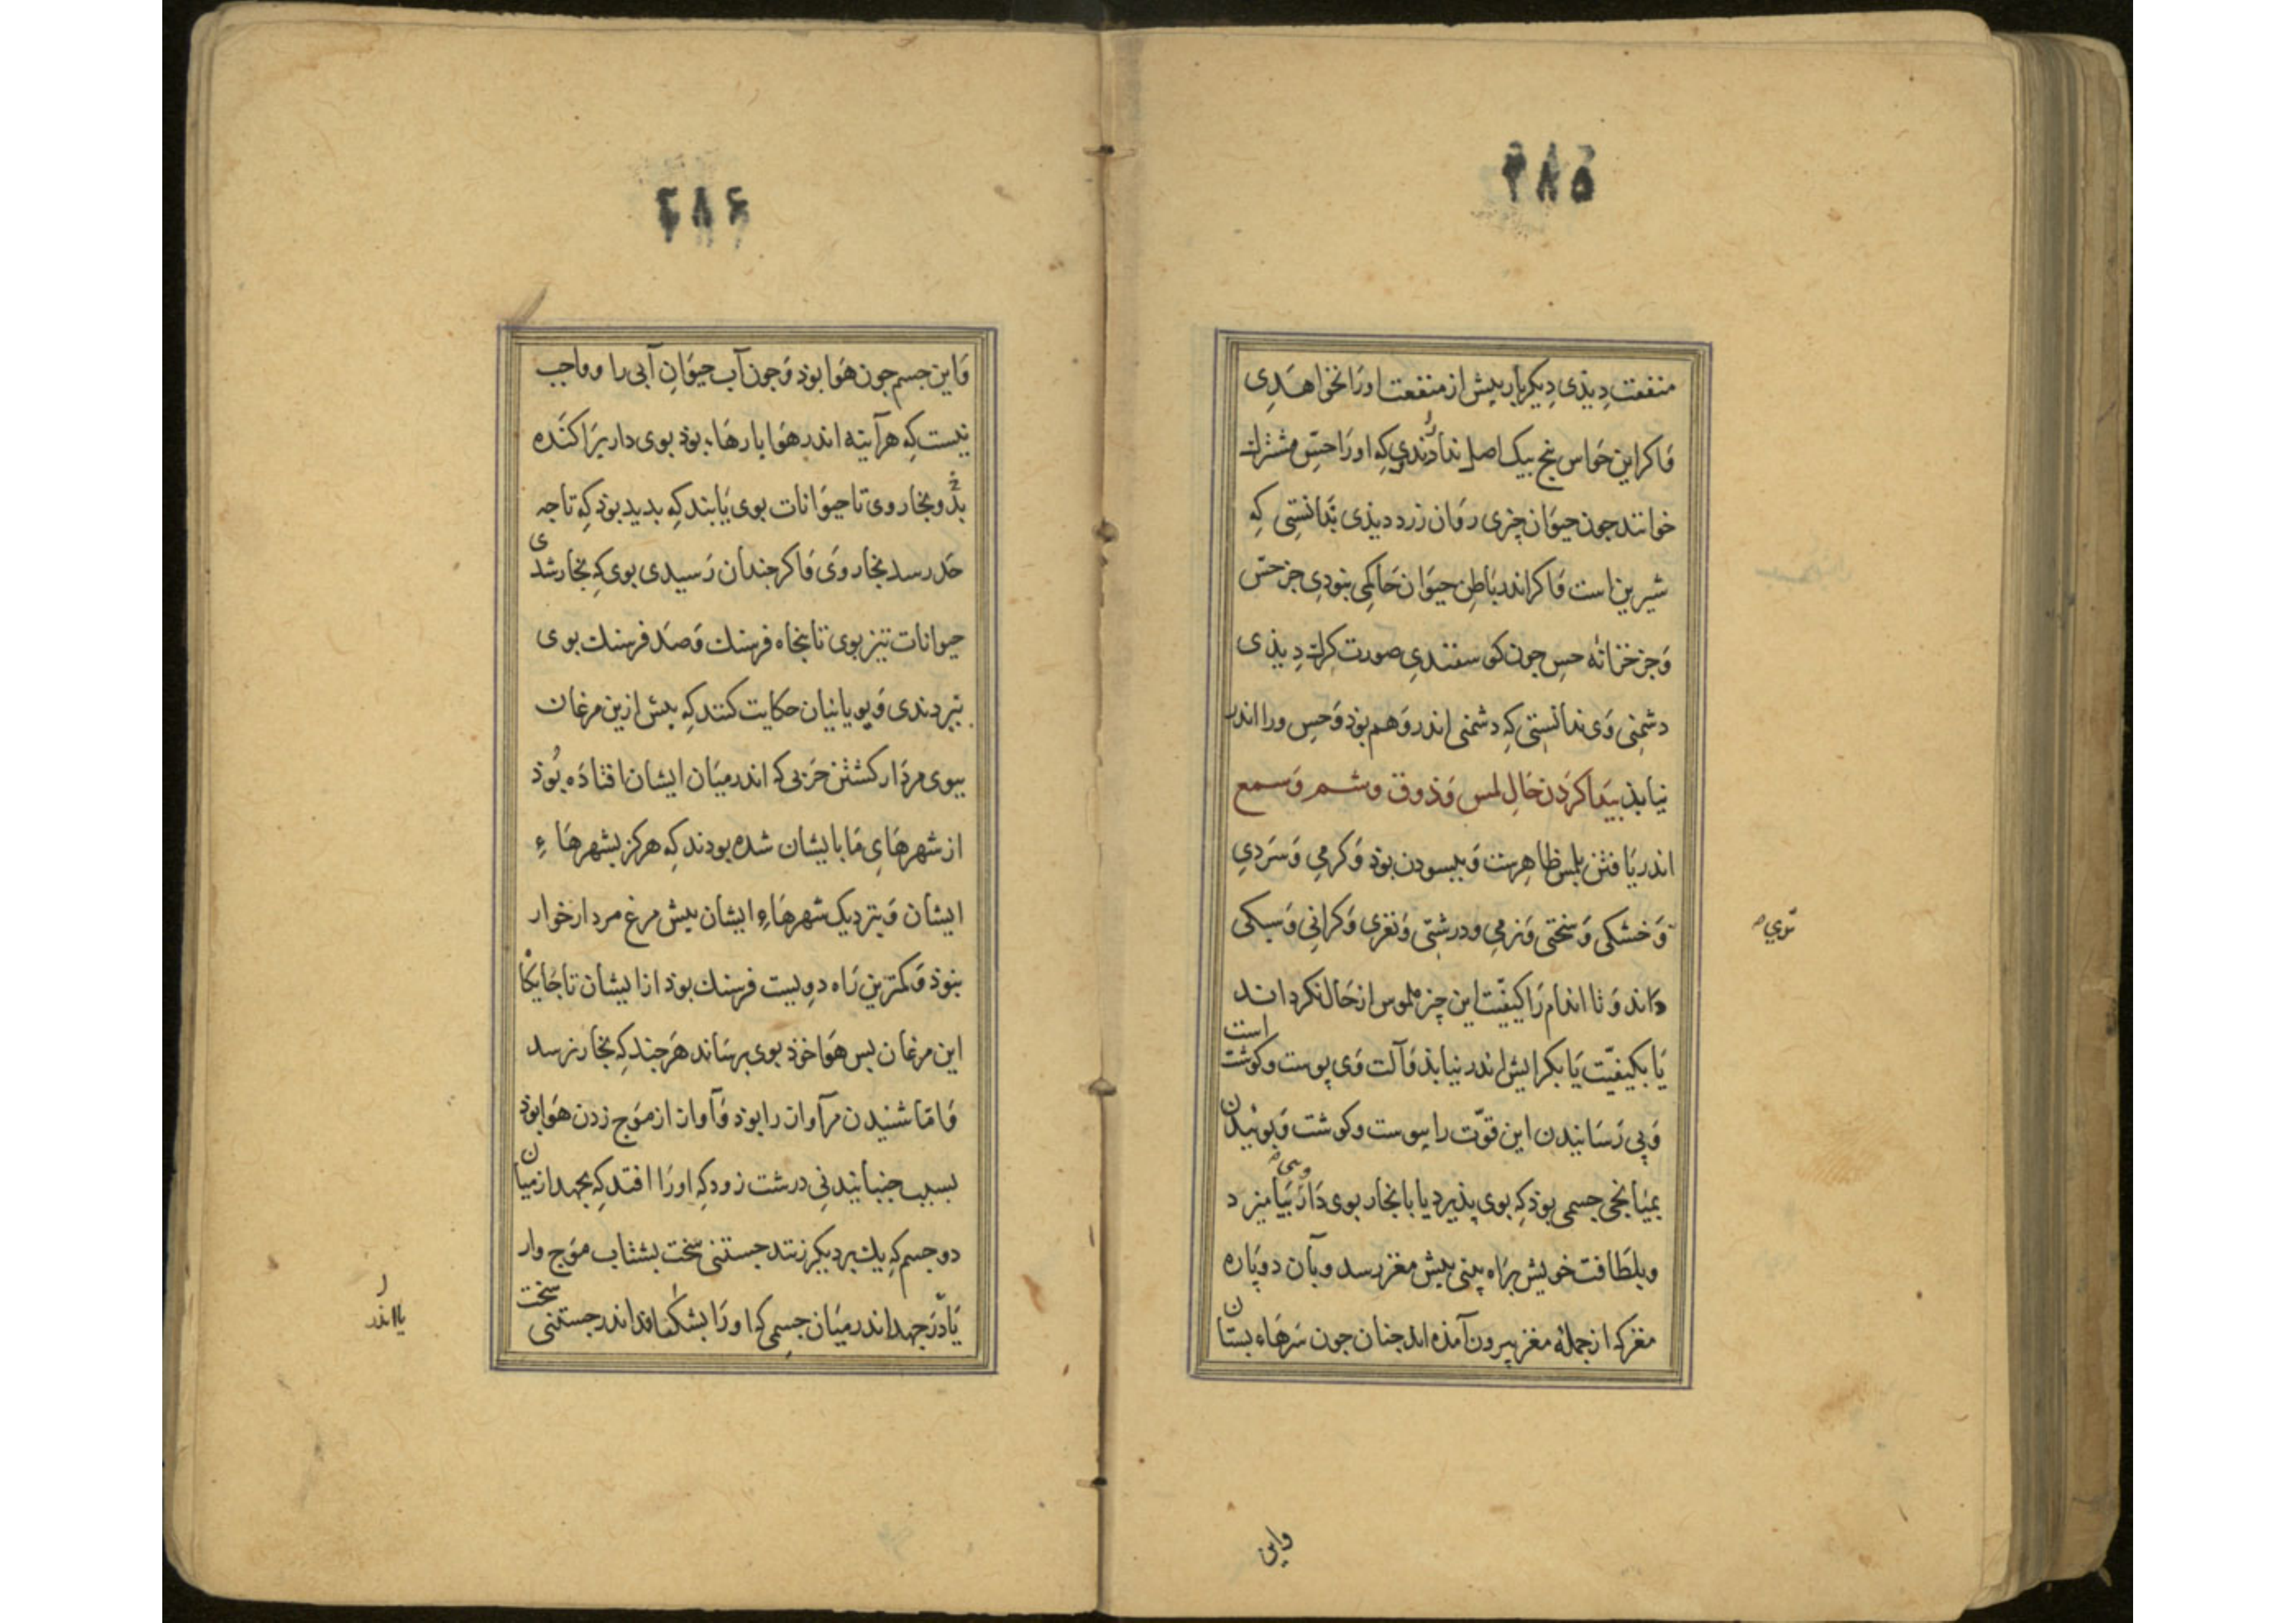 ۲۸۵
منفعت دیذی دیکر بار بیش از منفعت اورا نخواهدی
وَاکر این حَواس پنج بیک اصل نداذندی کِه اورَا حِسّ مشترک
خوانند جون حیوَان چزی روَان زرد دیذی بَدانستِی کِه
شیرین است وَاکر اندر بَاطِن حیوَان حَاکِمی نبودِی جز حسّ
وَجز خزانهٔ حس جون کوسفندی صورت کرک دِیذی
دشمنِی وَی ندانستِی کِه دشمنی اندر وَهم بوَذ وَحِس ورا اندر
نیابذ بیَدا کرَدن حَالِ لمس وَذوق وشم وَسمع
اندر یَافتن بلمس ظاهِرست وَببسودن بوذ وَکرمِی وَسَردِی
وَخشکی وَسَختی وَنرمِی ودرشتی وَنغزی وَکرانِی وَسبکی
تری صح
دَاند وَتا اندام رَا کیفیّت این چز ملموس از حَال نکرداند
یَا بکیفیّت یَا بکرایش اندر نیابذ وَآلت وَی پوست وکوشت است
وَپی رَسَانیدن این قوّت را پوست وکوشت وَبوئیدن
بمیَانجی جسمی بوَذ کِه بوی پذیرد یا با بخار بوی دَار بیَامیزد
وبلطَافت خویش برَاه بینی بیش مغز رسد وبآن دوپَاره
مغز که از جملهٔ مغز بیرون آمذه اند جنان جون سَرهَاء بستان
واین
۲۸۶
وَاین جسم جون هَوا بوَذ وَجون آب حیوَانِ آبی را وواجب
نیست کِه هر آینه اندر هَوا بارهَاء بوَذ بوی دار برَاکنَده
بذ وبخار وی تا حیوَانات بوی یَابند کِه بدید بوَذ کِه تا جه
حَد رسد بخار وَی وَاکر جندان رَسیدی بوی کِه بخار شدی
حیوانات تیز بوی تا بنجاه فرسنک وَصَد فرسنک بوی
نبردندی وَیویانیان حکایت کنند کِه بیش ازین مرغان
ببوی مردَار کشتن حَربی که اندر میَان ایشان افتاذه بُوذ
از شهرهَایِ مَا بایشان شده بودند کِه هرکز بشهرهَاءِ
ایشان وَبنزدیک شهرهَاءِ ایشان بیش مرغ مردار خوار
نبوذ وَکمترین رَاه دویست فرسنک بوذ از ایشان تا جَایکا
این مرغان بس هَوا خوَذ بوی برسَاند هَر جند کِه بخار نرسد
وَامّا شنیدن مر آواز را بوَذ وَآواز از موَج زدن هَوا بوَذ
بسبب جنبانیدنِی درشت زود کِه اورَا افتد کِه بجهد از میان
دو جسم کِه یک بر دیکر زنند جستنی سخت بشتاب موَج وار
یَا دَر جهد اندر میَان جسمِی که اورَا بشکافد اندر جستنی سخت
یا اندر